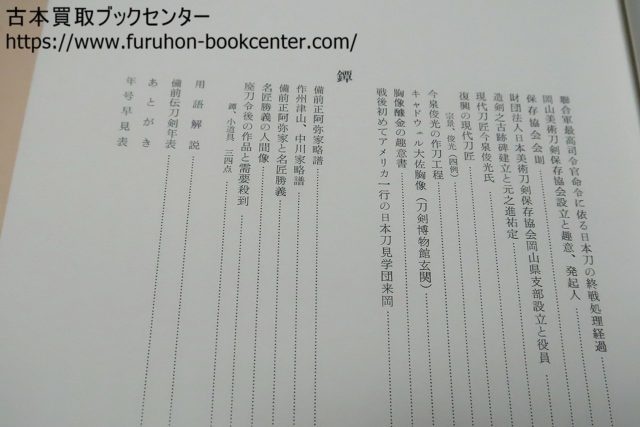 古本買取ブックセンター
https://www.furuhon-bookcenter.com/
聯合軍最高司令官命令に依る日本刀の終戦処理経過
岡山美術刀剣保存協会設立と趣意、発起人
保存協会会則
財団法人日本美術刀剣保存協会岡山県支部設立と役員
造剣之古跡碑建立と元之進祐定
現代刀匠今泉俊光氏
復興の現代刀匠
宗景、俊光(四例)
今泉俊光の作刀工程
キャドウェル大佐胸像(刀剣博物館玄関)
胸像醵金の趣意書
戦後初めてアメリカ一行の日本刀見学団来岡
鐔
備前正阿弥家略譜
作州津山、中川家略譜
備前正阿弥家と名匠勝義
名匠勝義の人間像
廃刀令後の作品と需要殺到
鐔、小道具、三四点
用語解説
備前伝刀剣年表
あとがき
年号早見表